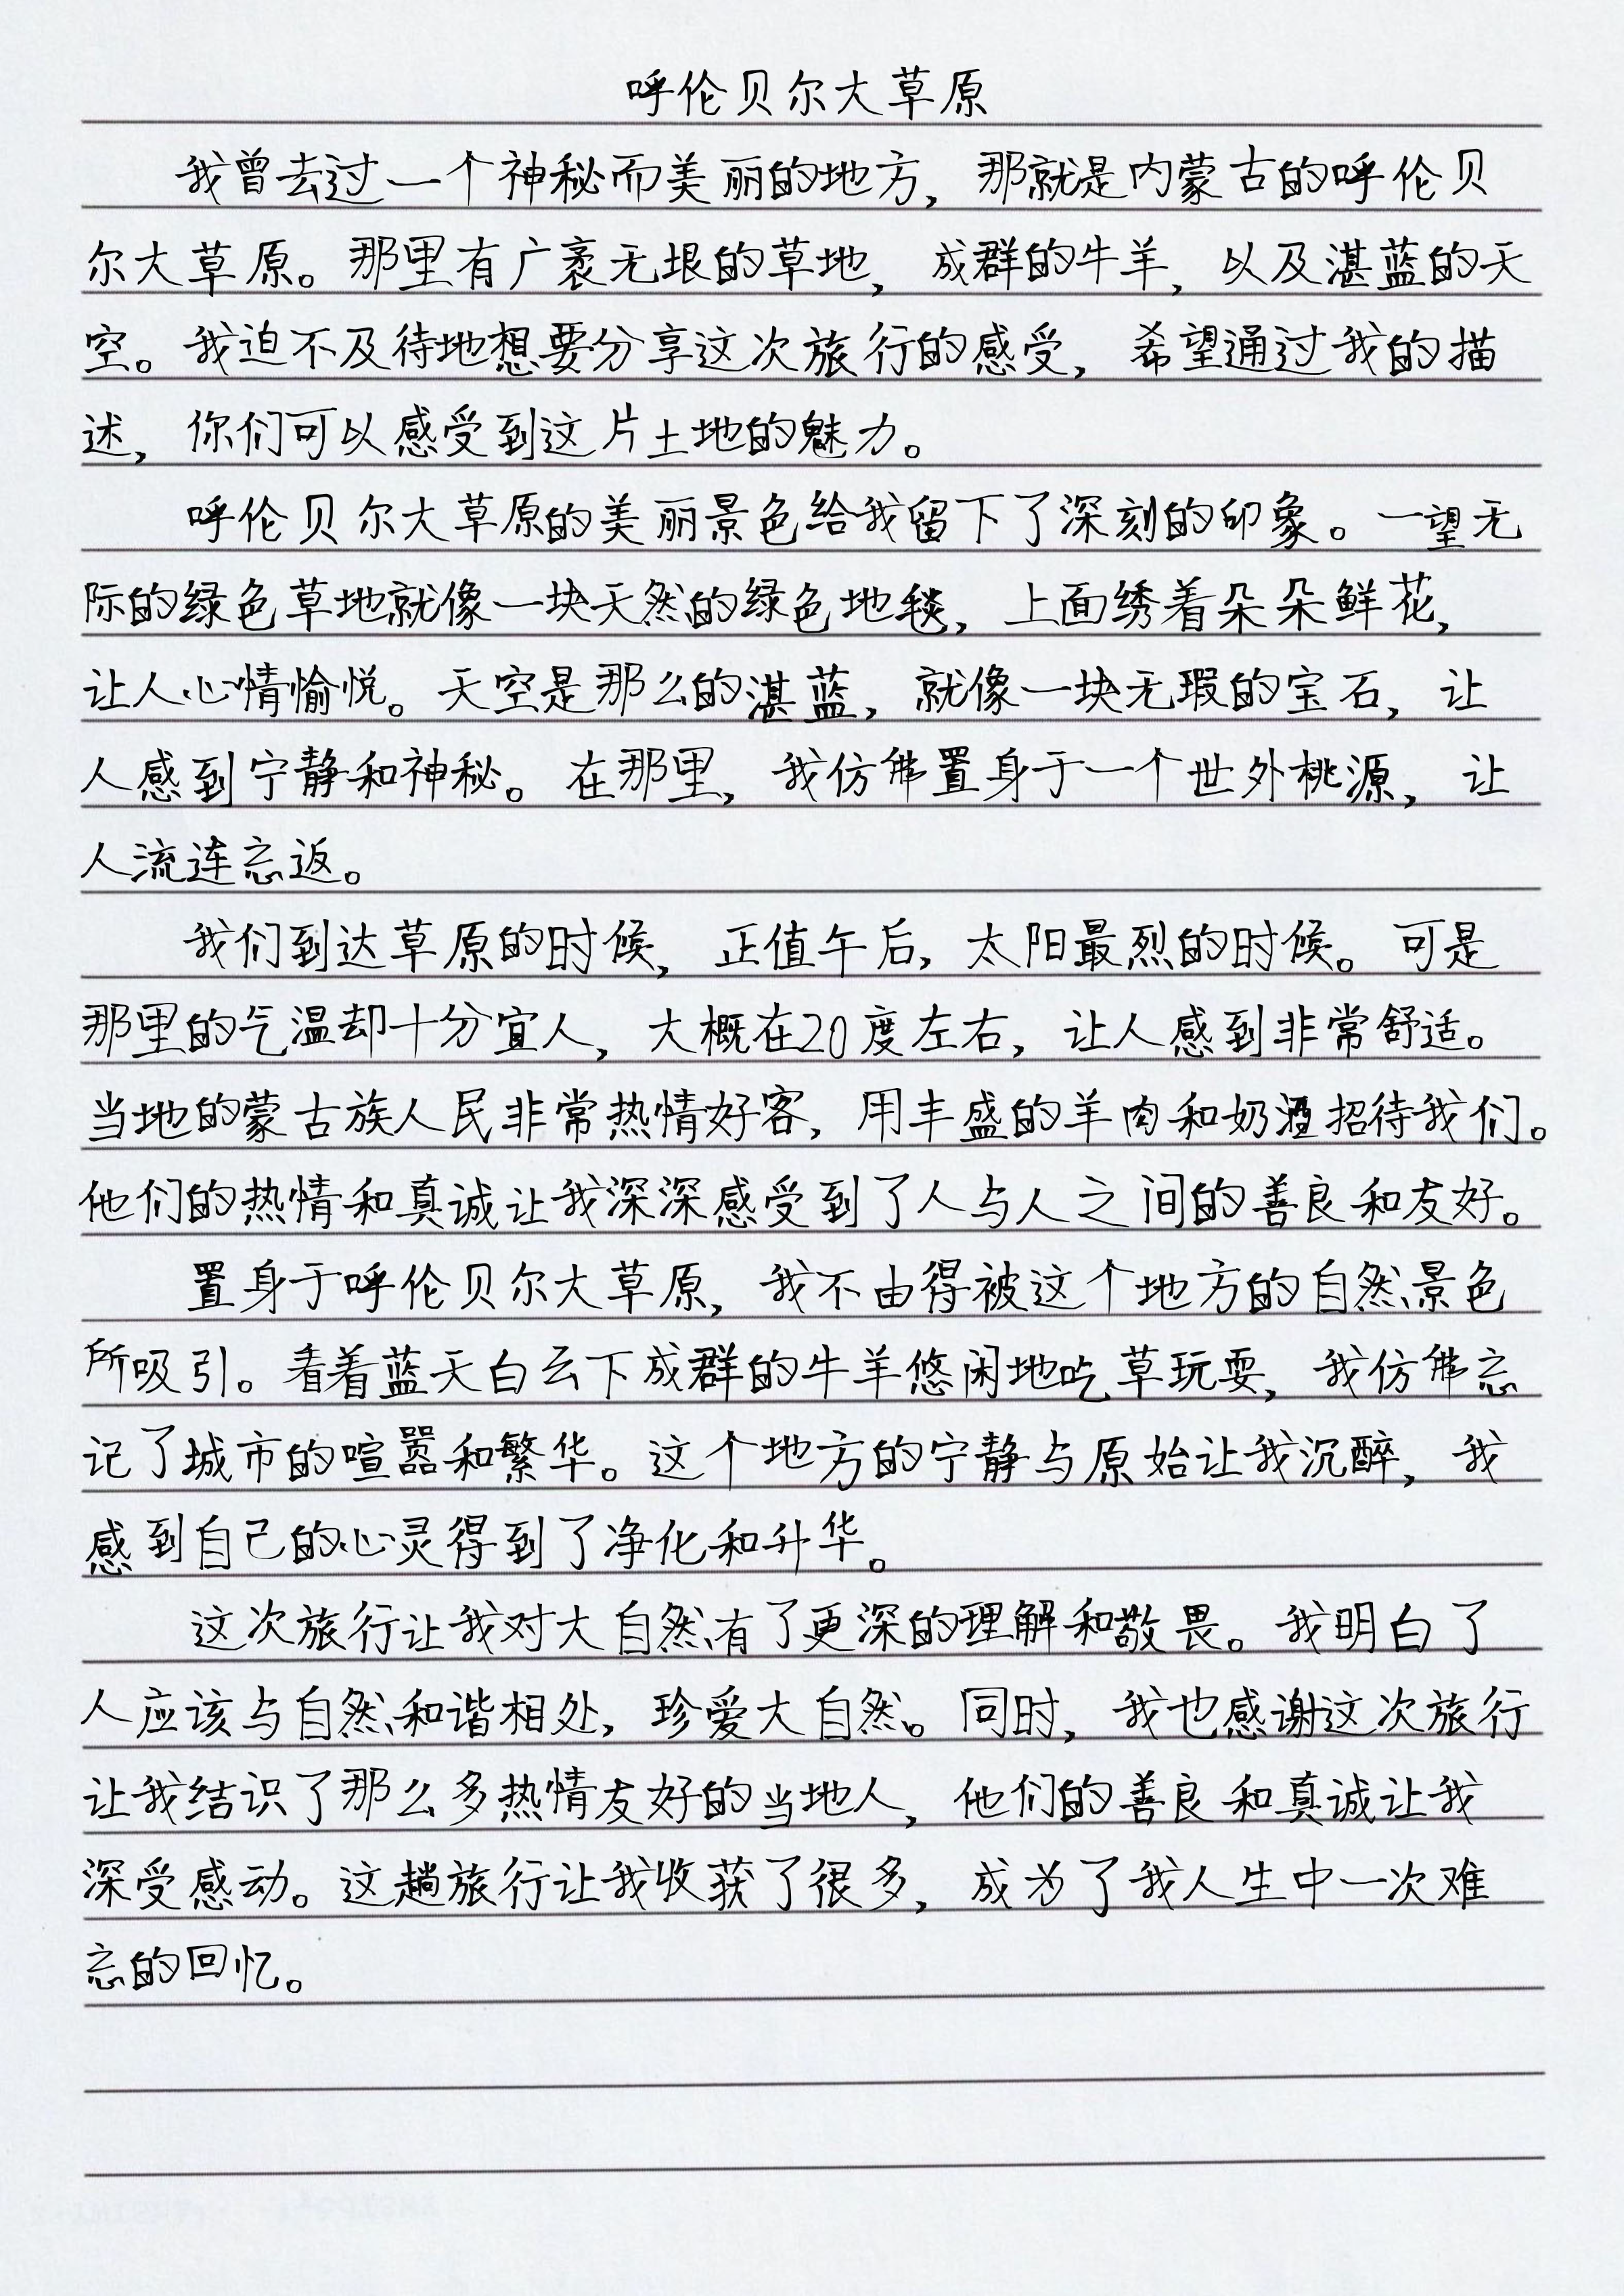 呼伦贝尔大草原
我曾去过一个神秘而美丽的地方，那就是内蒙古的呼伦贝
尔大草原。那里有广袤无垠的草地，成群的牛羊，以及湛蓝的天
空。我迫不及待地想要分享这次旅行的感受，希望通过我的描
述，你们可以感受到这片土地的魅力。
呼伦贝尔大草原的美丽景色给我留下了深刻的印象。一望无
际的绿色草地就像一块天然的绿色地毯，上面绣着朵朵鲜花，
让人心情愉悦。天空是那么的湛蓝，就像一块无瑕的宝石，让
人感到宁静和神秘。在那里，我仿佛置身于一个世外桃源，让
人流连忘返。
我们到达草原的时候，正值午后，太阳最烈的时候。可是
那里的气温却十分宜人，大概在20度左右，让人感到非常舒适。
当地的蒙古族人民非常热情好客，用丰盛的羊肉和奶酒招待我们。
他们的热情和真诚让我深深感受到了人与人之间的善良和友好。
置身于呼伦贝尔大草原，我不由得被这个地方的自然景色
所吸引。看着蓝天白云下成群的牛羊悠闲地吃草玩耍，我仿佛忘
记了城市的喧嚣和繁华。这个地方的宁静与原始让我沉醉，我
感到自己的心灵得到了净化和升华。
这次旅行让我对大自然有了更深的理解和敬畏。我明白了
人应该与自然和谐相处，珍爱大自然。同时，我也感谢这次旅行
让我结识了那么多热情友好的当地人，他们的善良和真诚让我
深受感动。这趟旅行让我收获了很多，成为了我人生中一次难
忘的回忆。